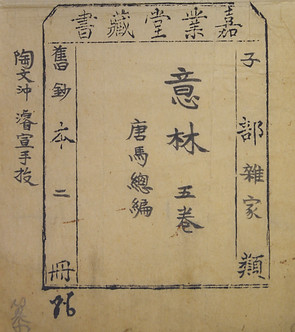 嘉業堂藏書
子部雜家類
意林五卷
唐馬總編
舊鈔本二冊
陶文沖 濬宣手挍